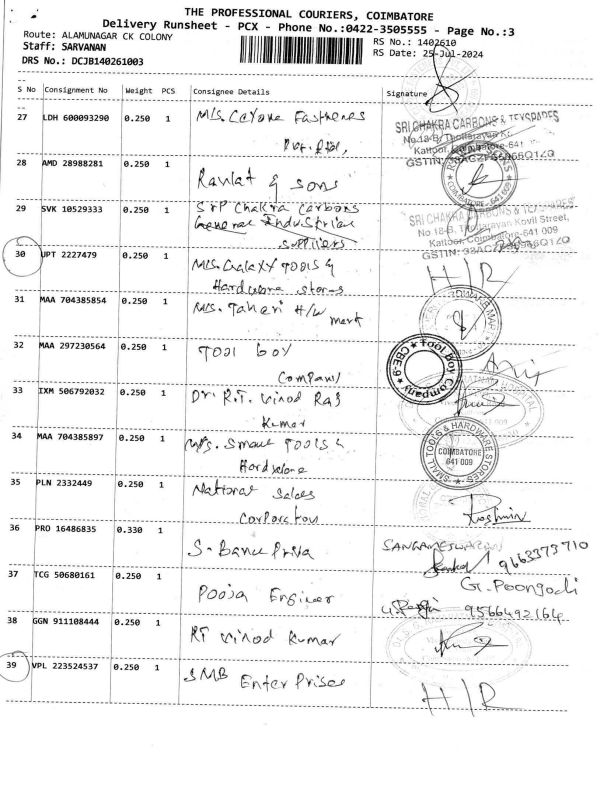 THE PROFESSIONAL COURIERS, COIMBATORE
Delivery Runsheet - PCX - Phone No.:0422-3505555 - Page No.:3
Route: ALAMUNAGAR CK COLONY
RS No.: 1402610
Staff: SARVANAN
RS Date: 25-Jul-2024
DRS No.: DCJB140261003
S No Consignment No Weight PCS Consignee Details Signature
27 LDH 600093290 0.250 1 M/s. Fasteners
SRI CHAKRA CARBONS & TEXSPARES
28 AMD 28988281 0.250 1 Ravlat & sons
COIMBATORE - 641 009
29 SVK 10529333 0.250 1 Sri Chakra Carbons
General Industrial
Suppliers
SRI CHAKRA CARBONS & TEXSPARES
No.18-B, Thottarayan Kovil Street,
Kattoor, Coimbatore-641 009
30 UPT 2227479 0.250 1 M/s. Galaxy Tools &
Hardware Stores
H/R
31 MAA 704385854 0.250 1 M/s. Taheri H/W
Mart
32 MAA 297230564 0.250 1 Tool boy
Company
Tool Boy Company
CBE-9
33 IXM 506792032 0.250 1 Dr. R.T. Vinod Raj
Kumar
34 MAA 704385897 0.250 1 M/s. Smart Tools &
Hardware
SMALL TOOLS & HARDWARE STORES
COIMBATORE
641 009
35 PLN 2332449 0.250 1 National Sales
Corporation
36 PRO 16486835 0.330 1 S. Banu Priya
SANGAMESWARAN
9663373710
37 TCG 50680161 0.250 1 Pooja Engineer
G. Poongodi
9566492164
38 GGN 911108444 0.250 1 RT Vinod Kumar
39 VPL 223524537 0.250 1 SMB Enterprises
H/R